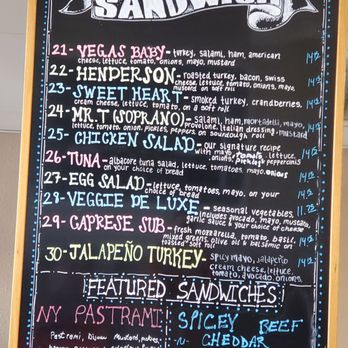 SANDWICH
21-VEGAS BABY-turkey, salami, ham, american
cheese, lettuce, tomato, onions, mayo, mustard
22-HENDERSON-roasted turkey, bacon, swiss
cheese, lettuce, tomato, onions, mayo
mustard on soft roll
23-SWEET HEART-smoked turkey, cranberries,
cream cheese, lettuce, tomato on a soft roll
24-MR.T (SOPRANO)-salami, ham, mortadella, mayo,
provolone, Italian dressing, mustard
lettuce, tomato, onion, pickles, peppers on sourdough roll
25-CHICKEN SALAD-our signature recipe
with mayo, tomato, lettuce,
onions, pickles, pepperoncinis
26-TUNA-albacore tuna salad, lettuce, tomatoes, mayo, onions
on your choice of bread
27-EGG SALAD-lettuce, tomatoes, mayo, on your
choice of bread
28-VEGGIE DE LUXE-seasonal vegetables,
includes avocado, mayo, mustard,
garlic sauce & your choice of cheese
29-CAPRESE SUB-fresh mozzarella, tomato, basil,
mixed greens, olive oil & balsamic on
toasted soft roll
30-JALAPEÑO TURKEY-spicy mayo, jalapeño
cream cheese, lettuce,
tomato, avocado, onions,
FEATURED SANDWICHES
NY PASTRAMI
Pastrami, Dijon mustard, pickles,
SPICEY BEEF
N- CHEDDAR